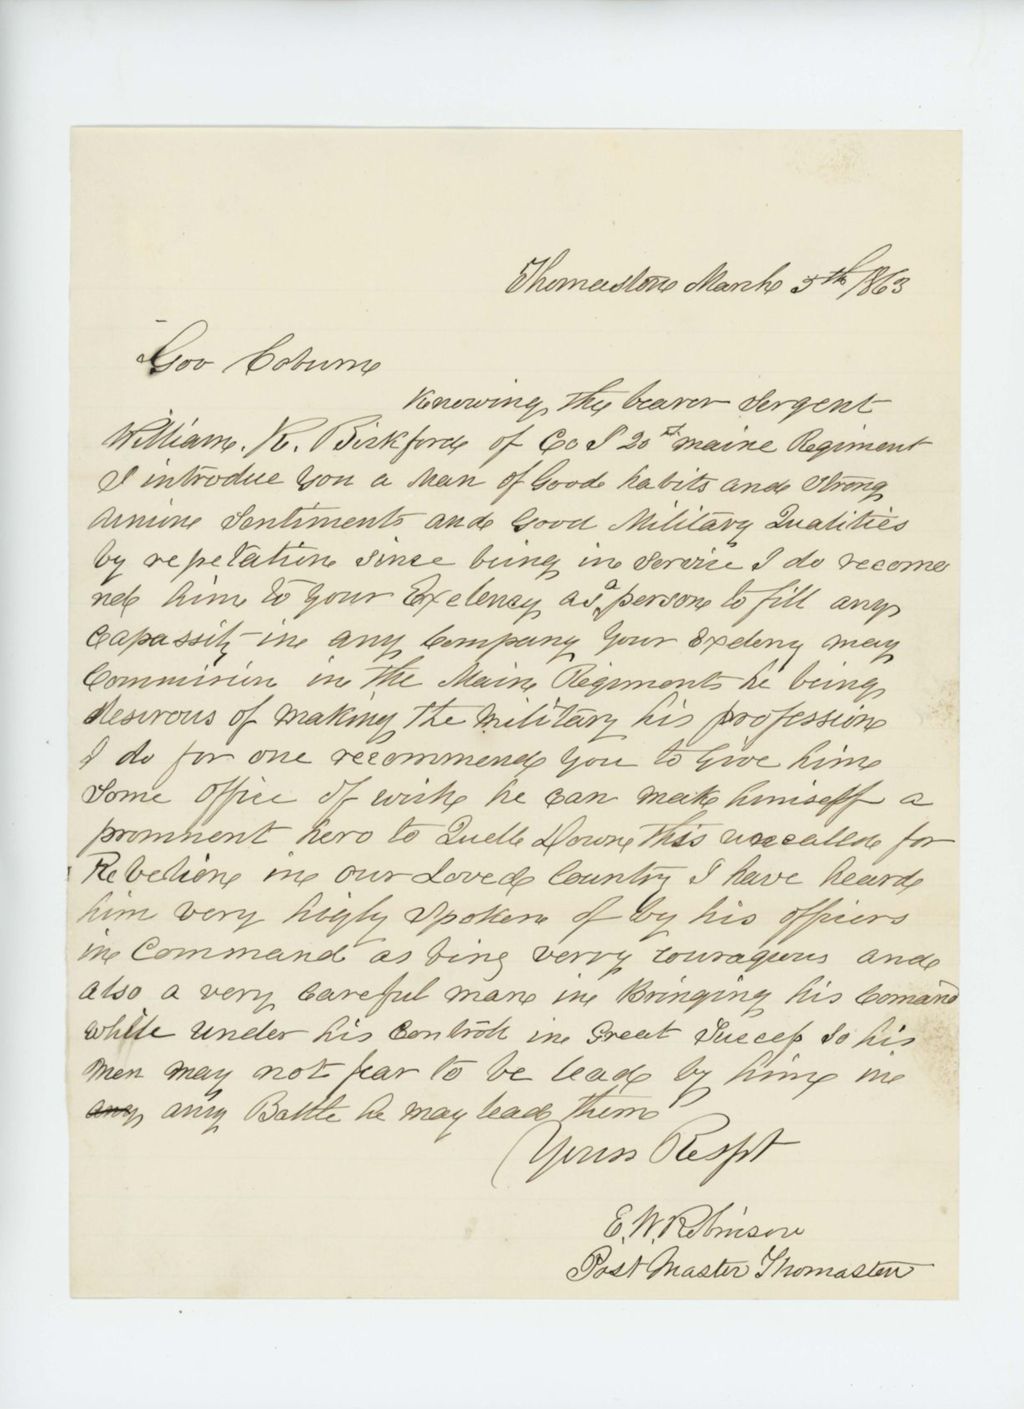 Thomastone March 5th 1863
Gov Coburne
Knowing the bearer Sergent
William. K. Bickford of Co I 20th maine Regiment
I introduce you a Man of Good habits and Strong
Union Sentiments and Good Military Qualities
by repetation Since being in Service I do recome
nd him to your Exelency as a person to fill any
Capassity in any Company your Exeleny may
Commission in the Maine Regiments he being
desirous of making the military his profession
I do for one recommend you to Give him
Some office of wich he can make himself a
prominent hero to Quell Down this uncalled for
Rebelion in our Loved Country I have heard
him very higly Spoken of by his officers
in Command as bing verry couragous and
also a very Careful man in Bringing his Comand
while under his Controll in Great Success So his
men may not fear to be lead by him in
any any Battle he may lead them
Yours Respt
E. W. Robinson
Post Master Thomaston